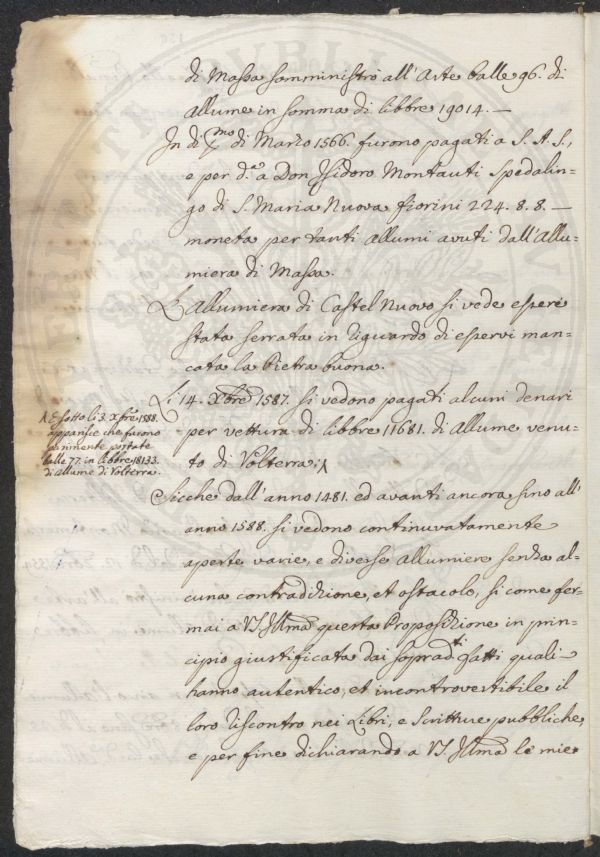 di Massa somministrò all'Arte balle 96. di
Allume in somma di libbre 19014.—
In di pmo di Marzo 1566. furono pagati a S. A. S.,
e per d.a a Don Isidoro Montauti Spedalin-
go di S. Maria Nuova fiorini 224. 8. 8.—
moneta per tanti Allumi avuti dall'Allu-
miera di Massa.
L'Allumiera di Castel Nuovo si vede essere
stata serrata in riguardo di esservi man-
cata la Pietra buona.
Li 14. Xbre 1587. si vedono pagati alcuni denari
per vettura di libbre 11681. di Allume venu-
to di Volterra:
E sotto li 3. Xbre 1588.
apparisce che furono
parimente portate
balle 77. in libbre 18133.
di Allume di Volterra.
Sicche dall'anno 1481. ed avanti ancora sino all'
anno 1588. si vedono continuvatamente
aperte varie, e diverse allumiere senza al-
cuna contradizione, et ostacolo, si come fer-
mai a VS. Illma questa Proposizione in prin-
cipio giustificata dai sopradti fatti quali
hanno autentico, et incontrovestibile il
loro riscontro nei Libri, e Scritture pubbliche,
e per fine dichiarando a VS. Illma le mie